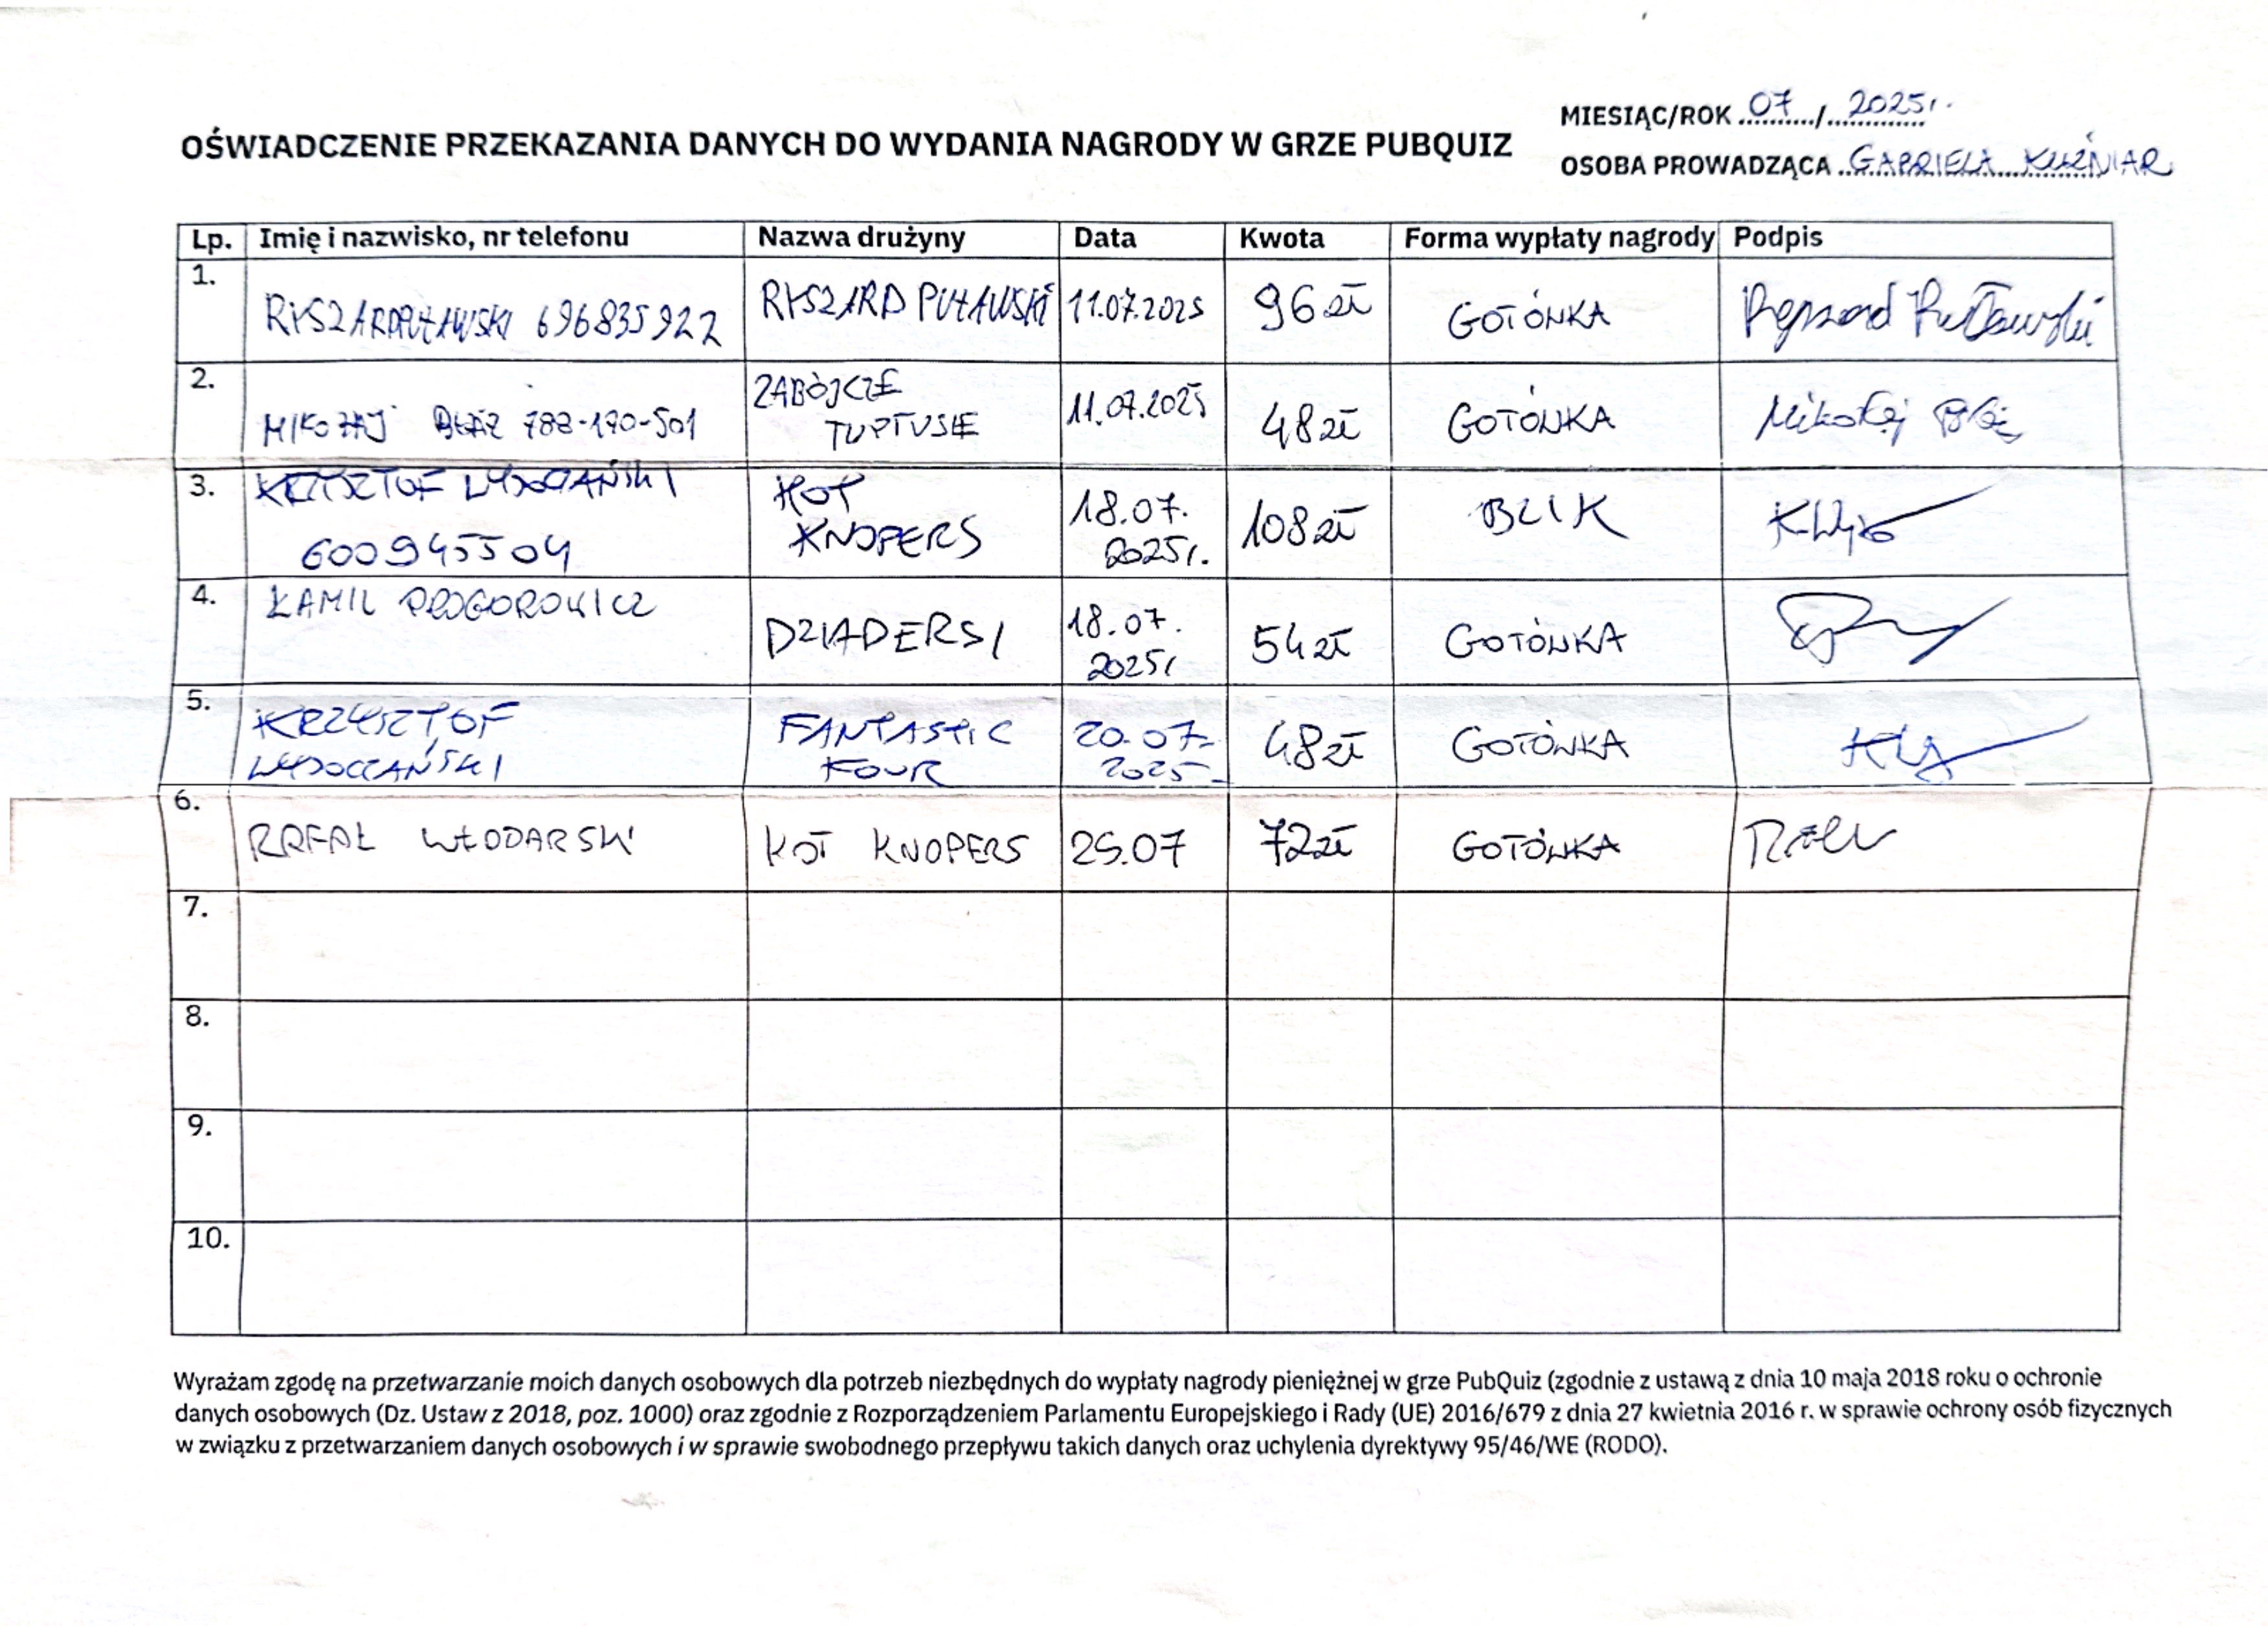 MIESIĄC/ROK 07 / 2025r.
OŚWIADCZENIE PRZEKAZANIA DANYCH DO WYDANIA NAGRODY W GRZE PUBQUIZ
OSOBA PROWADZĄCA GABRIELA KUŹNIAR
Lp. Imię i nazwisko, nr telefonu Nazwa drużyny Data Kwota Forma wypłaty nagrody Podpis
1. RYSZARD PUŁAWSKI 696835922 RYSZARD PUŁAWSKI 11.07.2025 96 zł GOTÓWKA Ryszard Puławski
2. MIKOŁAJ BŁAŻ 788-190-501 ZABÓJCZE TUPTUSIE 11.07.2025 48 zł GOTÓWKA Mikołaj
3. KRZYSZTOF 600945504 KOT KNOPERS 18.07. 2025r. 108 zł BLIK
4. KAMIL DZIADERSI 18.07. 2025r 54 zł GOTÓWKA
5. KRZYSZTOF FANTASTIC FOUR 20.07. 2025 48 zł GOTÓWKA
6. RAFAŁ WŁODARSKI KOT KNOPERS 25.07 72 zł GOTÓWKA
7.
8.
9.
10.
Wyrażam zgodę na przetwarzanie moich danych osobowych dla potrzeb niezbędnych do wypłaty nagrody pieniężnej w grze PubQuiz (zgodnie z ustawą z dnia 10 maja 2018 roku o ochronie
danych osobowych (Dz. Ustaw z 2018, poz. 1000) oraz zgodnie z Rozporządzeniem Parlamentu Europejskiego i Rady (UE) 2016/679 z dnia 27 kwietnia 2016 r. w sprawie ochrony osób fizycznych
w związku z przetwarzaniem danych osobowych i w sprawie swobodnego przepływu takich danych oraz uchylenia dyrektywy 95/46/WE (RODO).